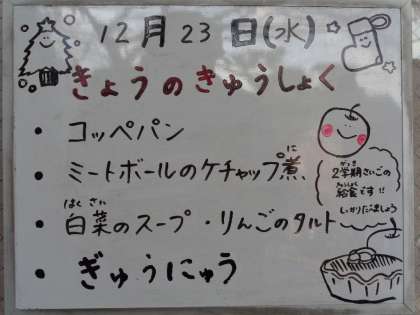 12月23日(水)
きょうのきゅうしょく
・コッペパン
・ミートボールのケチャップ煮
に
・白菜のスープ・りんごのタルト
はくさい
・ぎゅうにゅう
2学期さいごの
がっき
給食です!!
きゅうしょく
しっかりたべましょう